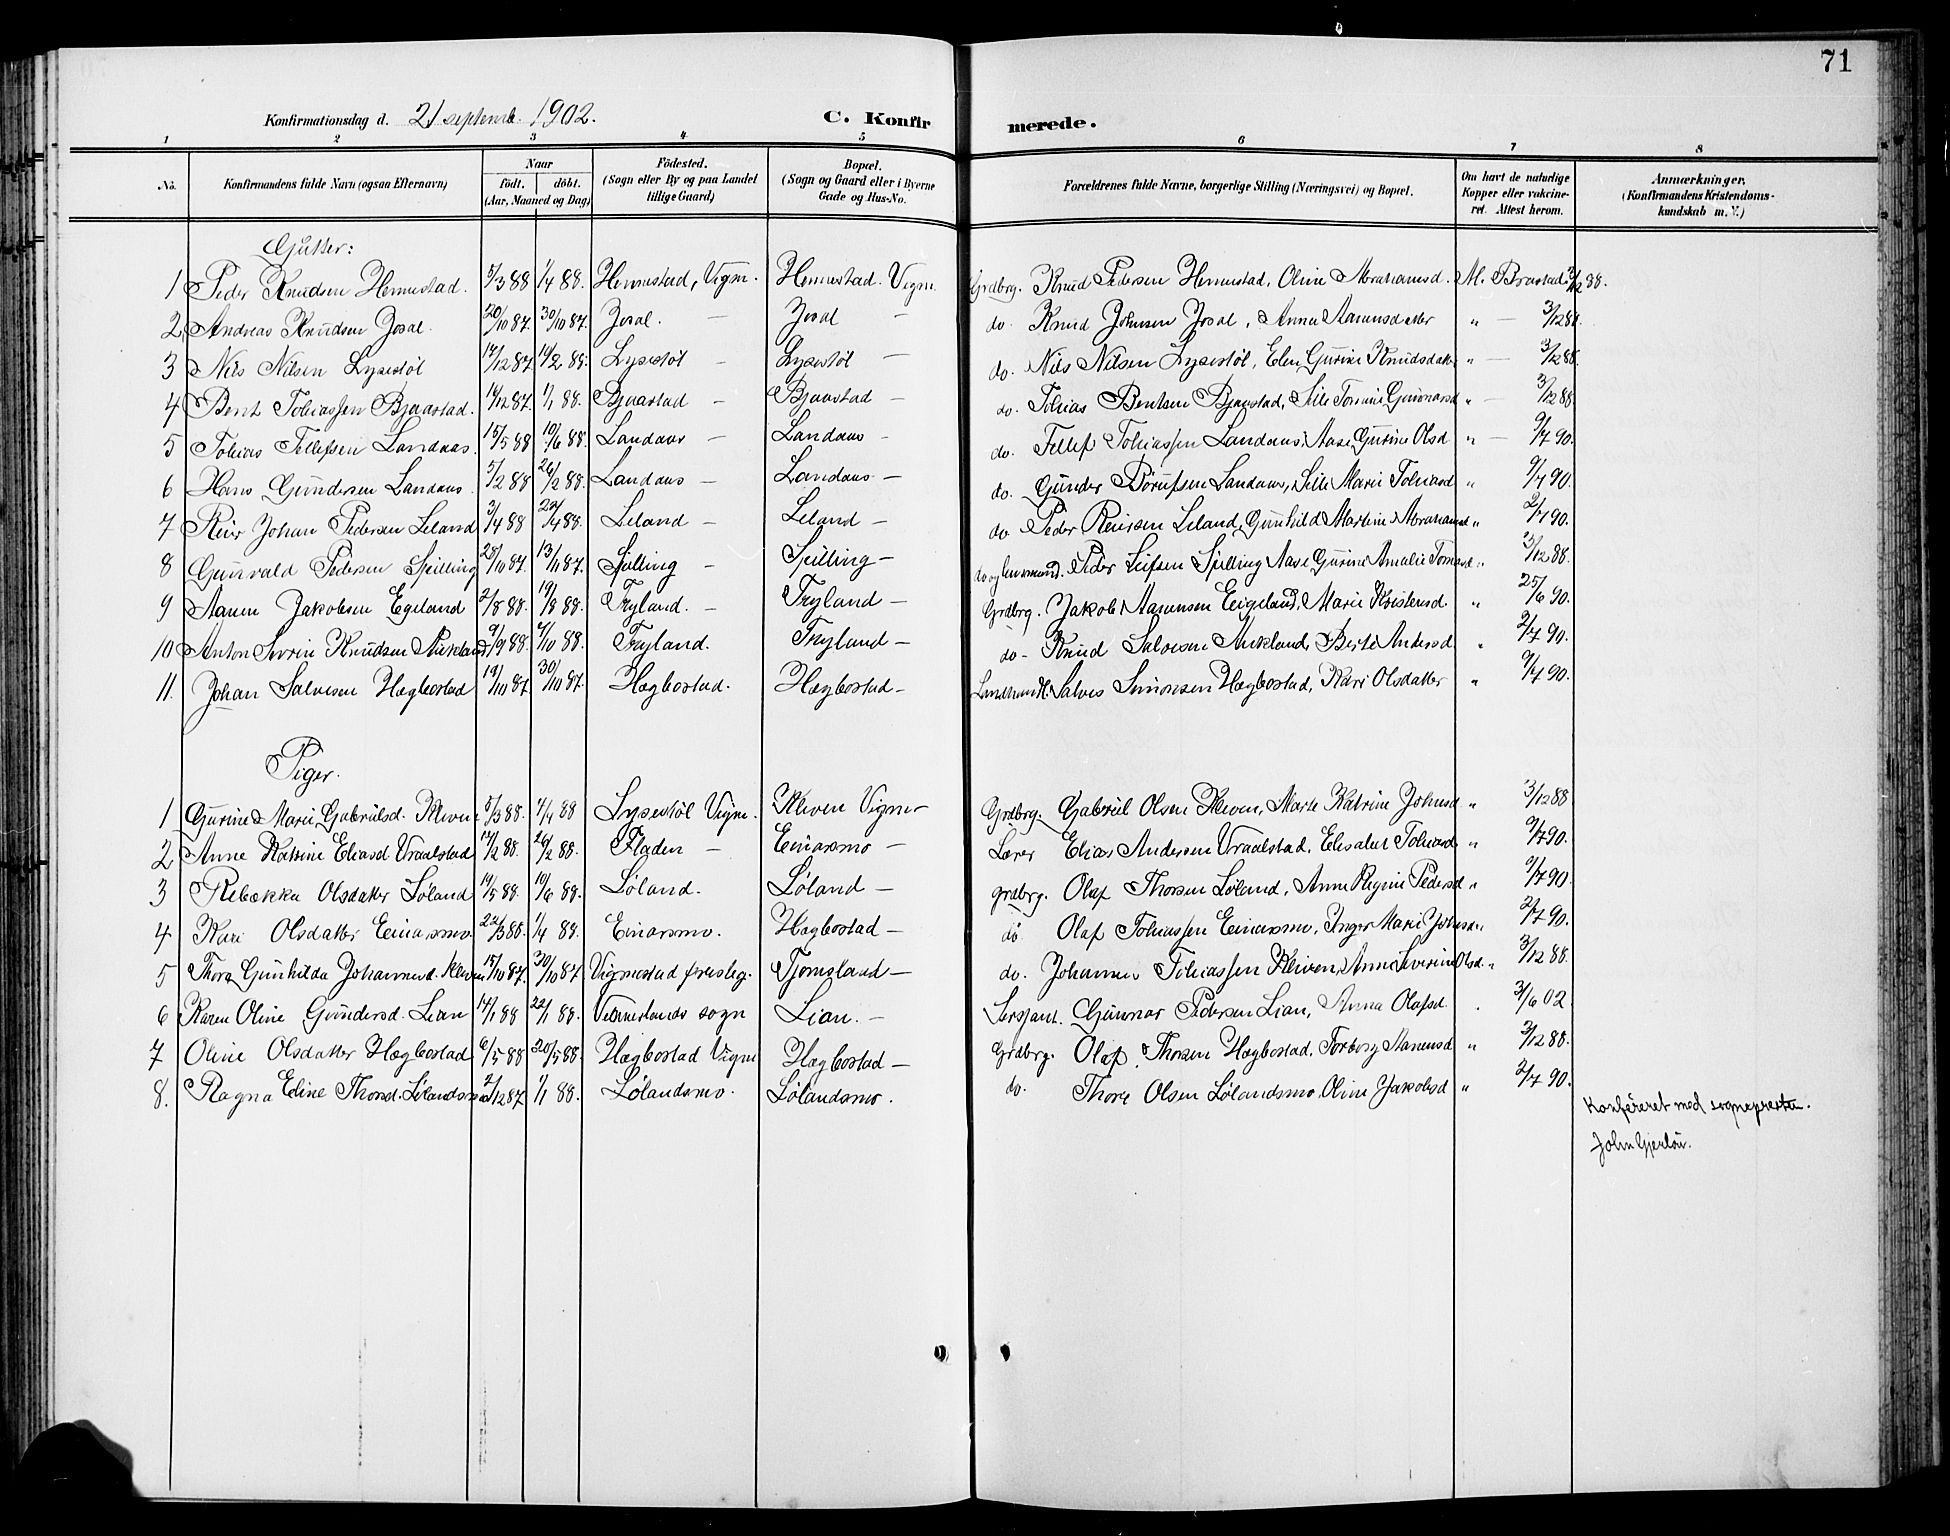 71
Konfirmationsdag d. 21 septemb. 1902. C. Konfirmerede.
1 2 3 4 5 6 7 8
No. Konfirmandens fulde Navn (ogsaa Efternavn) Naar født. døbt. (Aar, Maaned og Dag) Fødested. (Sogn eller By og paa Landet tillige Gaard) Bopæl. (Sogn og Gaard eller i Byerne Gade og Hus-No. Forældrenes fulde Navne, borgerlige Stilling (Næringsvei) og Bopæl. Om havt de naturlige Kopper eller vakcineret. Attest herom. Anmærkninger, (Konfirmandens Kristendomskundskab m. V.)
Gutter:
1 Peder Knudsen Hennestad. 5/3 88 1/4 88. Hennestad, Vigm. Hennestad. Vigm. Grdbrg. Knud Pedersen Hennestad, Oline Abrahamsd. M. Brastad 3/12 88.
2 Andreas Knudsen Josal. 20/10 87. 30/10 87. Josal. — Josal — do. Knud Johnsen Josal, Anna Aanensdatter " — 3/12 88.
3 Nils Nilsen Lysestøl 14/12 87. 14/2 88. Lysestøl — Lysestøl — do. Nils Nilsen Lysestøl, Elen Gurine Knudsdatter " — 3/12 88.
4 Bent Tobiassen Bjaastad. 14/12 87. 1/1 88. Bjaastad — Bjaastad — do. Tobias Bentsen Bjaastad, Sille Tomine Gunnarsd " — 3/12 88.
5 Tobias Tellefsen Landaas. 15/5 88 10/6 88. Landaas — Landaas — do. Tellef Tobiassen Landaas, Aase Gurine Olsd " — 9/7 90.
6 Hans Gundersen Landaas. 5/2 88 26/2 88. Landaas — Landaas — do. Gunder Børufsen Landaas, Sille Marie Tobiasd " 9/7 90.
7 Reier Johan Pedersen Leland 3/4 88 22/4 88. Leland — Leland — do Peder Reiersen Leland, Gunhild Martine Abrahamsd " 2/7 90.
8 Gunvald Pedersen Spilling 28/10 87. 13/11 87. Spilling — Spilling — do og lensmand. Peder Leifsen Spilling Aase Gurine Amalie Tomasd " 3/12 88.
9 Aanen Jakobsen Egeland 2/8 88. 19/8 88. Tryland. — Tryland — Grdbrg. Jakob Aanensen Eigeland, Marie Kristensd. " 25/6 90.
10 Anton Severin Knudsen Aukland 9/9 88. 7/10 88. Tryland. Tryland — do - Knud Salvesen Aukland, Berte Andersd " 2/7 90.
11. Johan Salvesen Hægbostad 19/10 87 30/10 87. Hægbostad. Hægbostad — Landhandl. Salves Simonsen Hægbostad, Kari Olsdatter " 9/7 90.
Piger.
1 Gurine Marie Gabrielsd. Kleven 5/3 88. 7/4 88 Lysestøl Vigm. Kleven Vigm — Grdbrg. Gabriel Olsen Kleven, Marte Katrine Johnsd " 3/12 88
2 Anne Katrine Eliasd Vraalstad 14/2 88. 26/2 88. Fladen — Einarsmo — Lærer Elias Andersen Vraalstad, Elisabet Tobiasd " 9/7 90.
3 Rebækka Olsdatter Løland 14/5 88. 10/6 88. Løland. Løland — grdbrg. Olaf Thorsen Løland, Anne Regine Pedersd " 9/7 90.
4 Kari Olsdatter Einarsmo 22/3 88. 1/4 88. Einarsmo. Hægbostad — do Olaf Tobiassen Einarsmo, Inger Marie Johnsd " 2/7 90.
5 Thora Gunhilda Johannesd. Kleven 15/10 87. 30/10 87. Vigmostad presteg. Tjomsland — do. Johannes Tobiassen Kleven, Anne Severine Olsd. " 3/12 88.
6 Karen Oline Gundersd. Lian 14/1 88 22/1 88. Vennerlands sogn Lian. — Sersjant. Gunnar Pedersen Lian, Anna Olafsd. . 3/6 02
7 Oline Olsdatter Hægbostad 6/5 88 20/5 88. Hægbostad Vigm Hægbostad — Grdbrg. Olaf Thorsen Hægbostad, Torborg Aanensd " 3/12 88.
8. Ragna Eline Thorsd. Lølandsmo 2/12 87 1/1 88. Lølandsmo. Lølandsmo. do. Thore Olsen Lølandsmo, Oline Jakobsd " 2/7 90.
Konfereret med sognepresten.
John Gjerløu.